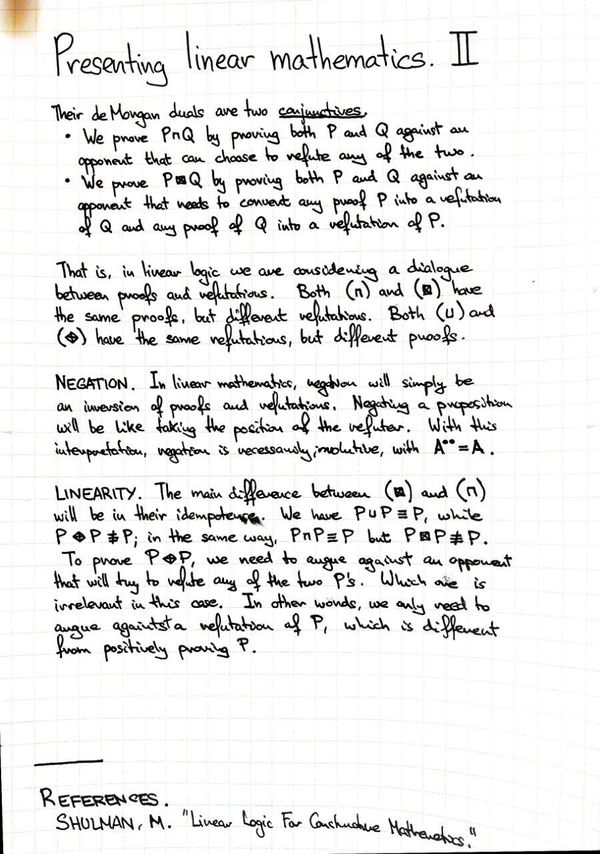 Presenting linear mathematics. II
Their de Morgan duals are two conjunctives.
• We prove P⊓Q by proving both P and Q against an
opponent that can choose to refute any of the two.
• We prove P⊠Q by proving both P and Q against an
opponent that needs to convert any proof P into a refutation
of Q and any proof of Q into a refutation of P.
That is, in linear logic we are considering a dialogue
between proofs and refutations. Both (⊓) and (⊠) have
the same proofs, but different refutations. Both (⊔) and
(⟴) have the same refutations, but different proofs.
NEGATION. In linear mathematics, negation will simply be
an inversion of proofs and refutations. Negating a proposition
will be like taking the position of the refuter. With this
interpretation, negation is necessarily involutive, with A** = A.
LINEARITY. The main difference between (⊠) and (⊓)
will be in their idempotence. We have P⊔P ≡ P, while
P⟴P ≢ P; in the same way, P⊓P ≡ P but P⊠P ≢ P.
To prove P⟴P, we need to argue against an opponent
that will try to refute any of the two P's. Which one is
irrelevant in this case. In other words, we only need to
argue againtst a refutation of P, which is different
from positively proving P.
REFERENCES.
SHULMAN, M. "Linear Logic For Constructive Mathematics."